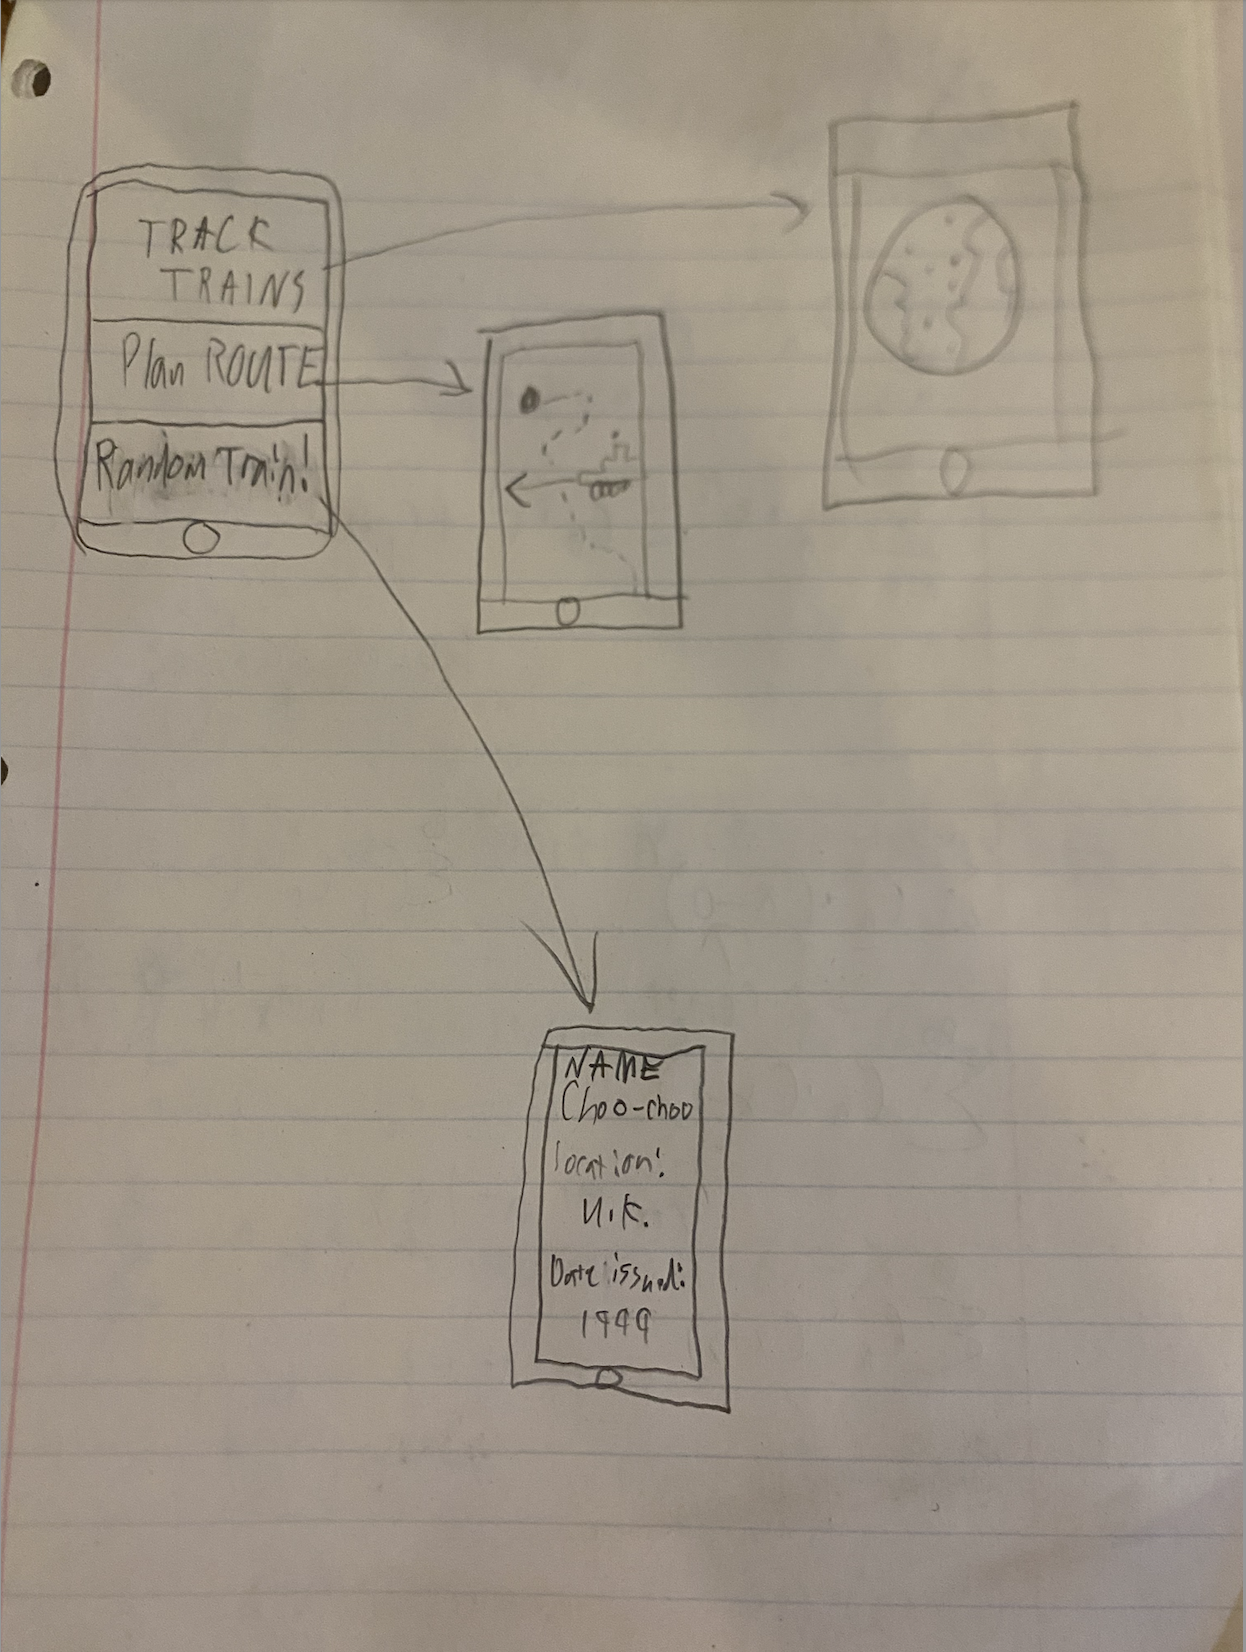 TRACK
TRAINS
Plan ROUTE
Random Train!
NAME
Choo-choo
location:
U.K.
Date issued:
1999